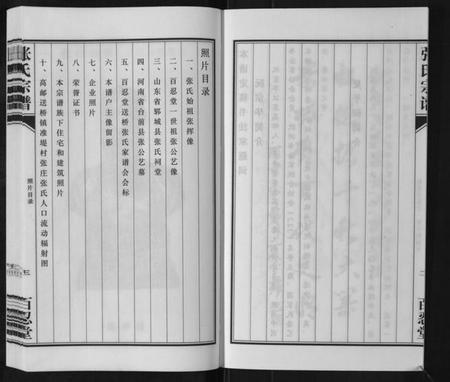 张氏宗谱
百忍堂
照片目录
一、张氏始祖张挥像
二、百忍堂一世祖张公艺像
三、山东省郓城县张氏祠堂
四、河南省台前县张公艺墓
五、百忍堂送桥张氏家谱会会标
六、本谱户主像留影
七、企业照片
八、荣誉证书
九、本宗谱族下住宅和建筑照片
十、高邮送桥镇准堤村张庄张氏人口流动辐射图
张氏宗谱
照片目录
三
百忍堂